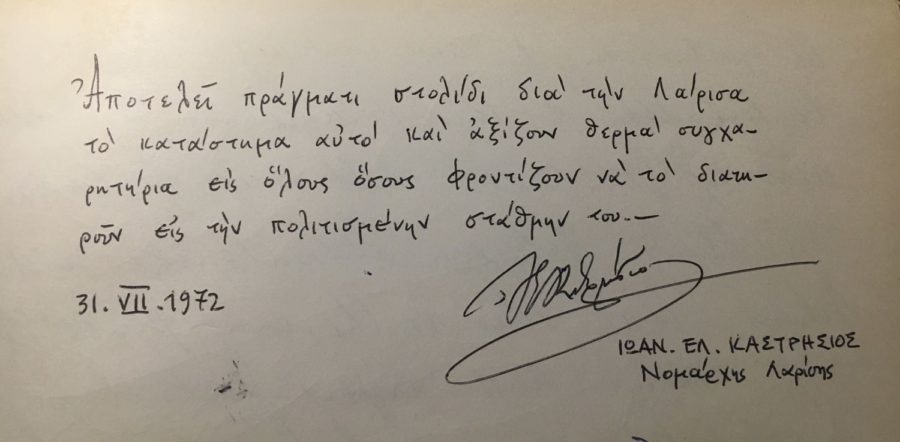 Ἀποτελεῖ πράγματι στολίδι διὰ τὴν Λάρισα
τὸ κατάστημα αὐτὸ καὶ ἀξίζουν θερμὰ συγχα-
ρητήρια εἰς ὅλους ὅσους φροντίζουν νὰ τὸ διατη-
ροῦν εἰς τὴν πολιτισμένην στάθμην του.—
31. VII. 1972
ΙΩΑΝ. ΕΛ. ΚΑΣΤΡΗΣΙΟΣ
Νομάρχης Λαρίσης